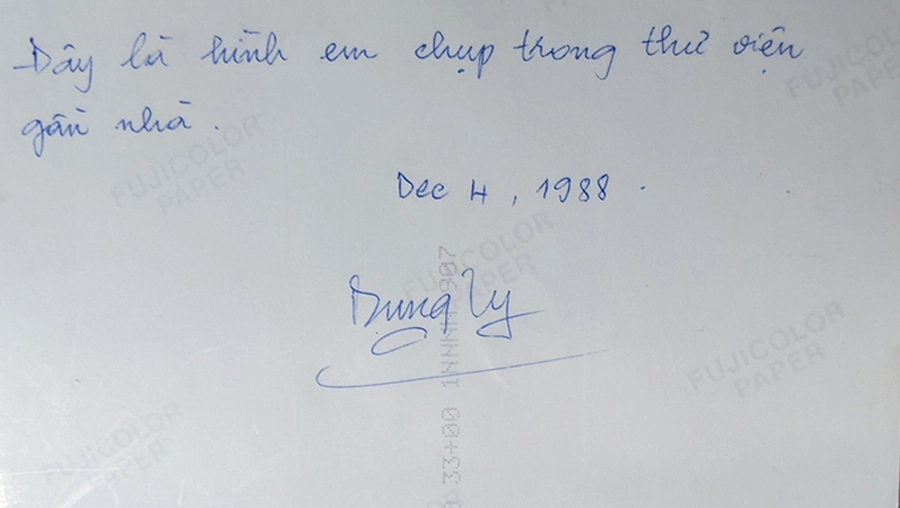 Đây là hình em chụp trong thư viện
gần nhà.
Dec 4, 1988.
Dung Ly
FUJICOLOR
PAPER
FUJICOLOR
PAPER
FUJICOLOR
PAPER
FUJICOLOR
PAPER
FUJICOLOR
PAPER
33+00 1NNNNN 907